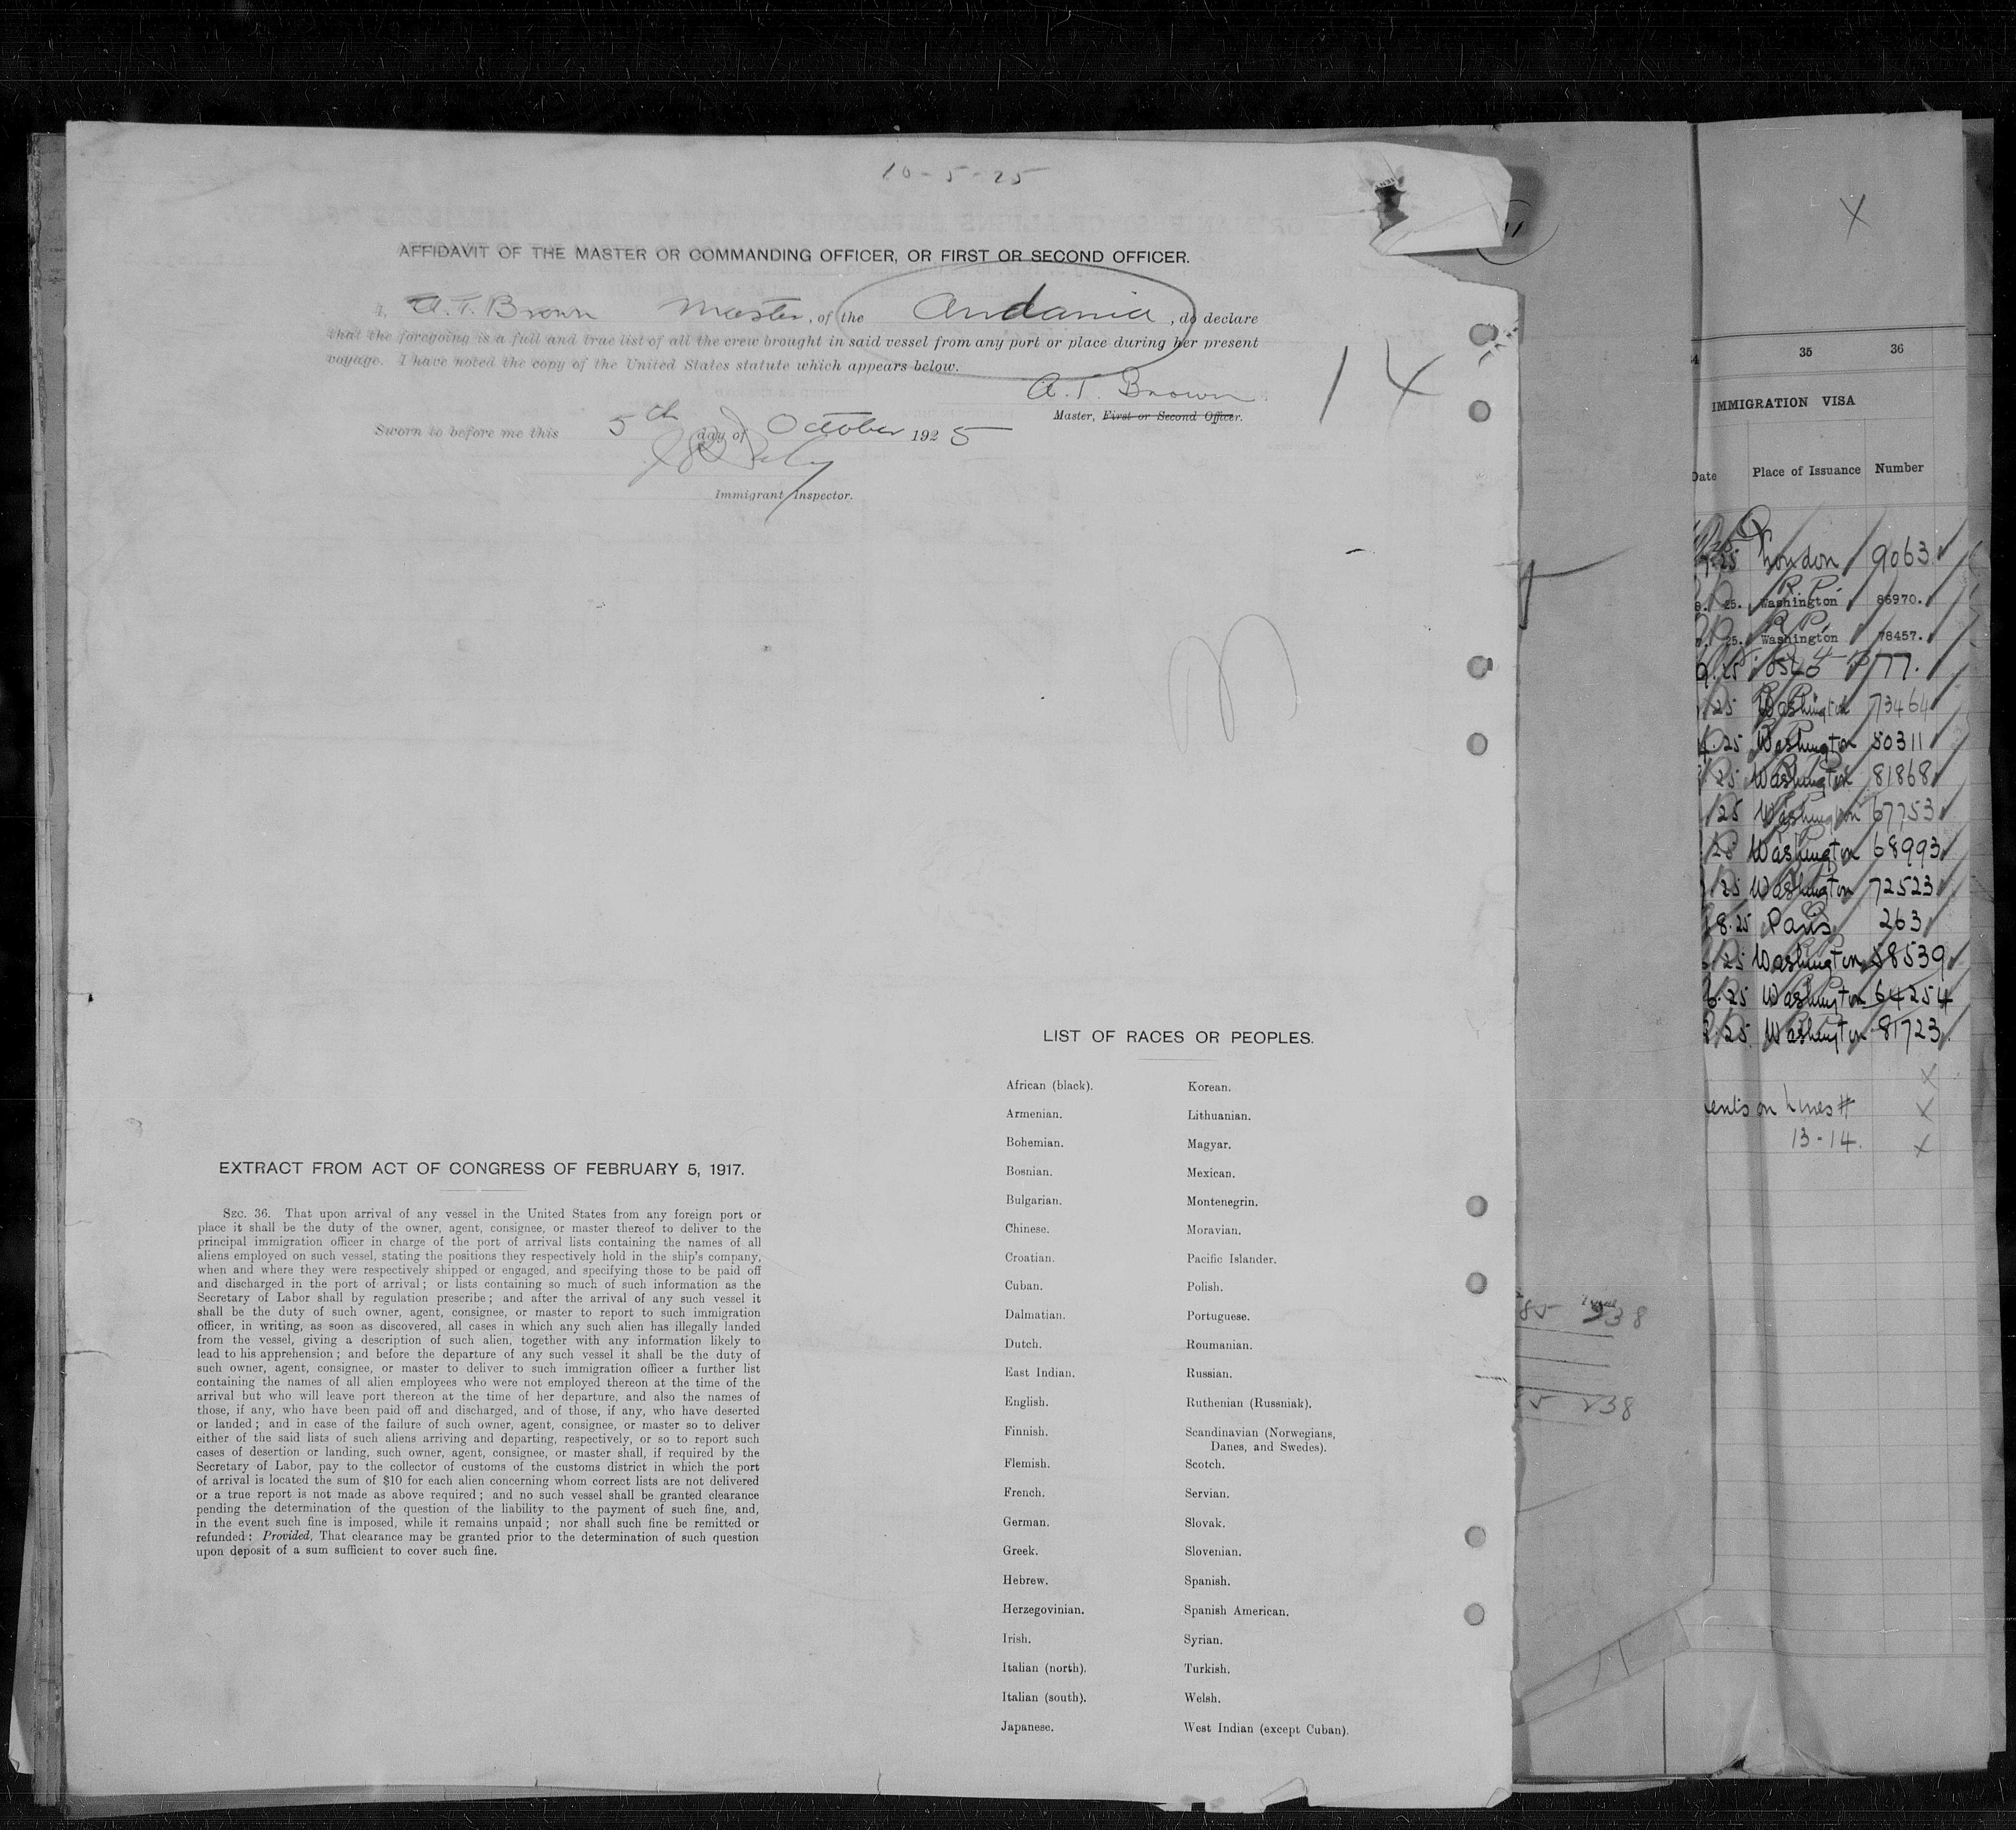 10-5-25
AFFIDAVIT OF THE MASTER OR COMMANDING OFFICER, OR FIRST OR SECOND OFFICER.
I, A.T. Brown Master, of the Andania, do declare
that the foregoing is a full and true list of all the crew brought in said vessel from any port or place during her present
voyage. I have noted the copy of the United States statute which appears below.
A.T. Brown
Master, First or Second Officer.
14
Sworn to before me this 5th day of October 1925
Immigrant Inspector.
EXTRACT FROM ACT OF CONGRESS OF FEBRUARY 5, 1917.
SEC. 36. That upon arrival of any vessel in the United States from any foreign port or
place it shall be the duty of the owner, agent, consignee, or master thereof to deliver to the
principal immigration officer in charge of the port of arrival lists containing the names of all
aliens employed on such vessel, stating the positions they respectively hold in the ship's company,
when and where they were respectively shipped or engaged, and specifying those to be paid off
and discharged in the port of arrival; or lists containing so much of such information as the
Secretary of Labor shall by regulation prescribe; and after the arrival of any such vessel it
shall be the duty of such owner, agent, consignee, or master to report to such immigration
officer, in writing, as soon as discovered, all cases in which any such alien has illegally landed
from the vessel, giving a description of such alien, together with any information likely to
lead to his apprehension; and before the departure of any such vessel it shall be the duty of
such owner, agent, consignee, or master to deliver to such immigration officer a further list
containing the names of all alien employees who were not employed thereon at the time of the
arrival but who will leave port thereon at the time of her departure, and also the names of
those, if any, who have been paid off and discharged, and of those, if any, who have deserted
or landed; and in case of the failure of such owner, agent, consignee, or master so to deliver
either of the said lists of such aliens arriving and departing, respectively, or so to report such
cases of desertion or landing, such owner, agent, consignee, or master shall, if required by the
Secretary of Labor, pay to the collector of customs of the customs district in which the port
of arrival is located the sum of $10 for each alien concerning whom correct lists are not delivered
or a true report is not made as above required; and no such vessel shall be granted clearance
pending the determination of the question of the liability to the payment of such fine, and,
in the event such fine is imposed, while it remains unpaid; nor shall such fine be remitted or
refunded: Provided, That clearance may be granted prior to the determination of such question
upon deposit of a sum sufficient to cover such fine.
LIST OF RACES OR PEOPLES.
African (black). Korean.
Armenian. Lithuanian.
Bohemian. Magyar.
Bosnian. Mexican.
Bulgarian. Montenegrin.
Chinese. Moravian.
Croatian. Pacific Islander.
Cuban. Polish.
Dalmatian. Portuguese.
Dutch. Roumanian.
East Indian. Russian.
English. Ruthenian (Russniak).
Finnish. Scandinavian (Norwegians,
Danes, and Swedes).
Flemish. Scotch.
French. Servian.
German. Slovak.
Greek. Slovenian.
Hebrew. Spanish.
Herzegovinian. Spanish American.
Irish. Syrian.
Italian (north). Turkish.
Italian (south). Welsh.
Japanese. West Indian (except Cuban).
85 238
238
X
35 36
IMMIGRATION VISA
Date Place of Issuance Number
25 London 9063
25. Washington 86970.
25. Washington 78457.
9.25 Oslo 77.
25 Washington 73464
25 Washington 50311
25 Washington 81868
25 Washington 67753
25 Washington 68993
25 Washington 72523
8.25 Paris 263
25 Washington 58539
25 Washington 64254
25 Washington 81723
X
on Lines # X
13-14. X